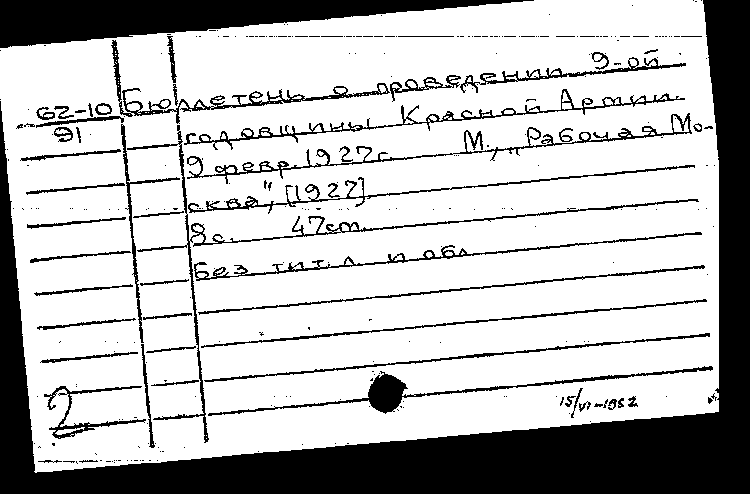 62-10 Бюллетень о проведении 9-ой
91 годовщины Красной Армии.
9 февр. 1927г. М., „Рабочая Мо-
сква", [1927]
8с. 47см.
Без тит. л и обл
2
15/VI-1962